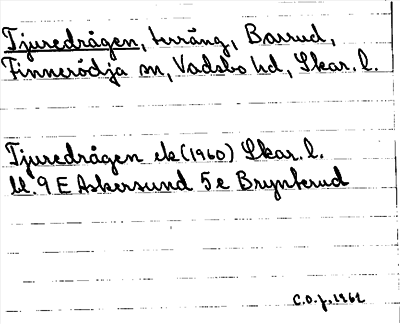 Tjuredrågen, terräng, Barrud,
Finnerödja sn, Vadsbo hd, Skar. l.
Tjuredrågen ek (1960) Skar. l.
bl. 9 E Askersund 5 e Brynterud
C.O.f. 1962